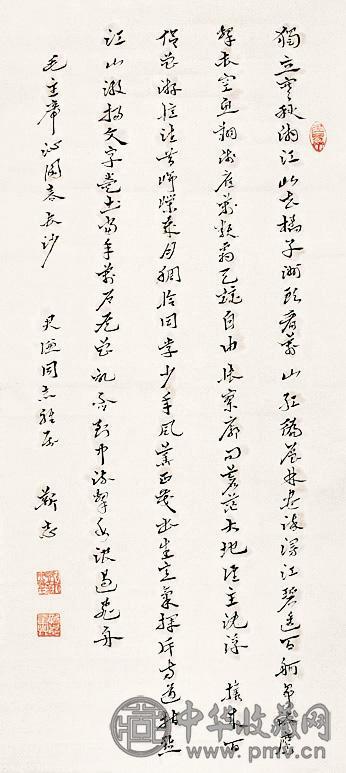 獨立寒秋湘江北去橘子洲頭看萬山紅遍層林盡染漫江碧透百舸爭流鷹
擊長空魚翔淺底萬類霜天競自由悵寥廓問蒼茫大地誰主沈浮 攜來百
侶曾游憶往昔崢嶸歲月稠恰同學少年風華正茂書生意氣揮斥方遒指點
江山激揚文字糞土當年萬户侯曾記否到中流擊水浪遏飛舟
毛主席沁園春長沙
同志 靳志
中华收藏网
www.pmv.cn